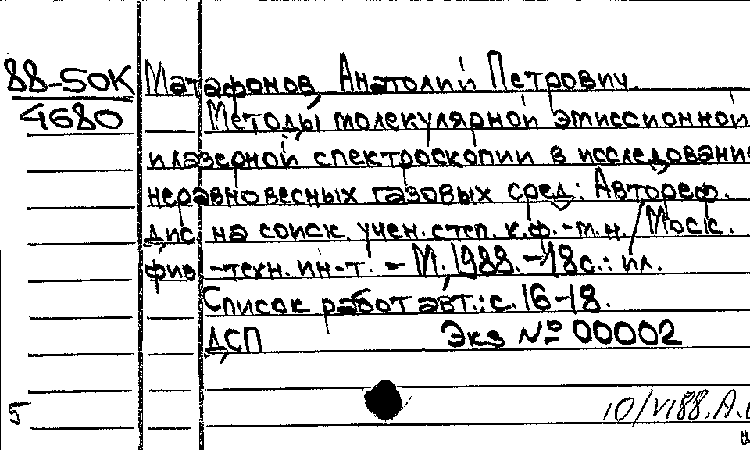 88-50К Матафонов, Анатолий Петрович.
4680 Методы молекулярной эмиссионной
и лазерной спектроскопии в исследовании
неравновесных газовых сред: Автореф.
дис. на соиск. учен. степ. к.ф.-м.н. / Моск.
физ-техн. ин-т. - М., 1988. - 18с.: ил.
Список работ авт.: с. 16-18.
ДСП Экз № 00002
5
10/VI88. А.